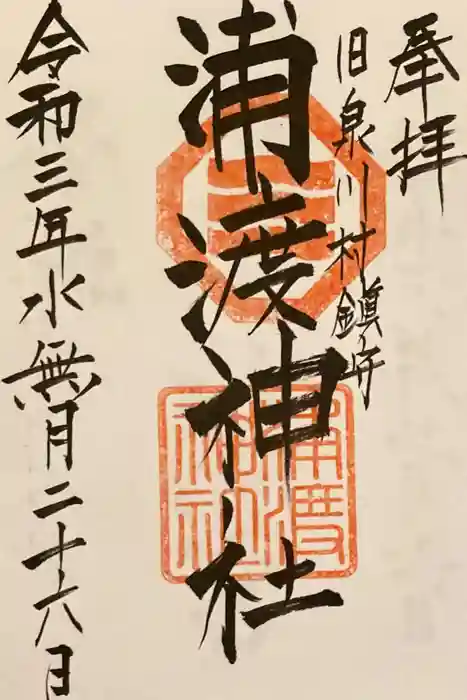 奉拝
旧泉川村鎮守
浦渡神社
浦渡
神社
令和三年水無月二十六日